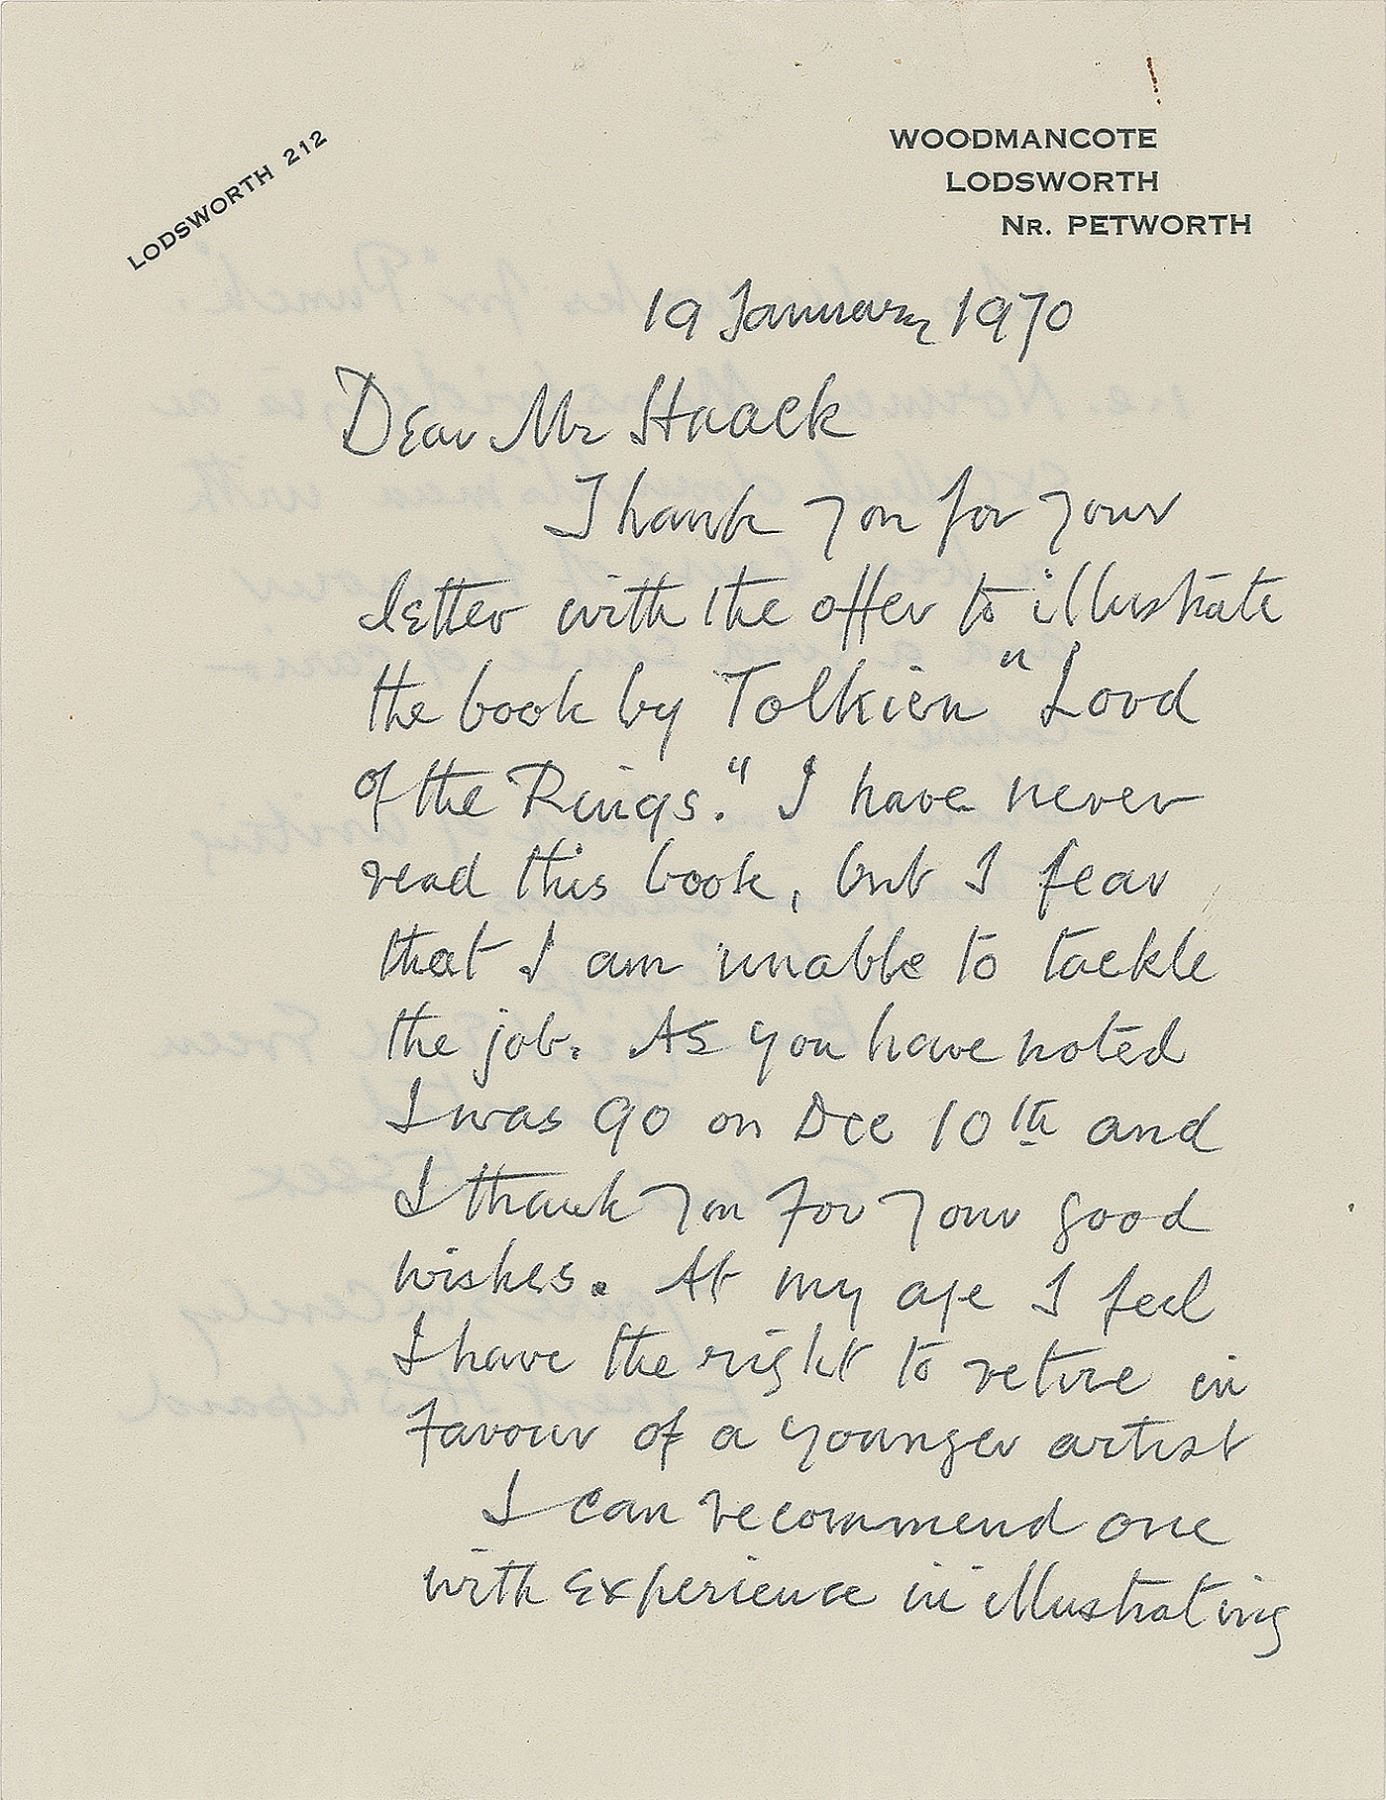 LODSWORTH 212
WOODMANCOTE
LODSWORTH
NR. PETWORTH
19 January 1970
Dear Mr Haack
Thank you for your
letter with the offer to illustrate
the book by Tolkien "Lord
of the Rings." I have never
read this book, but I fear
that I am unable to tackle
the job. As you have noted
I was 90 on Dec 10th and
I thank you for your good
wishes. At my age I feel
I have the right to retire in
favour of a younger artist
I can recommend one
with experience in illustrating